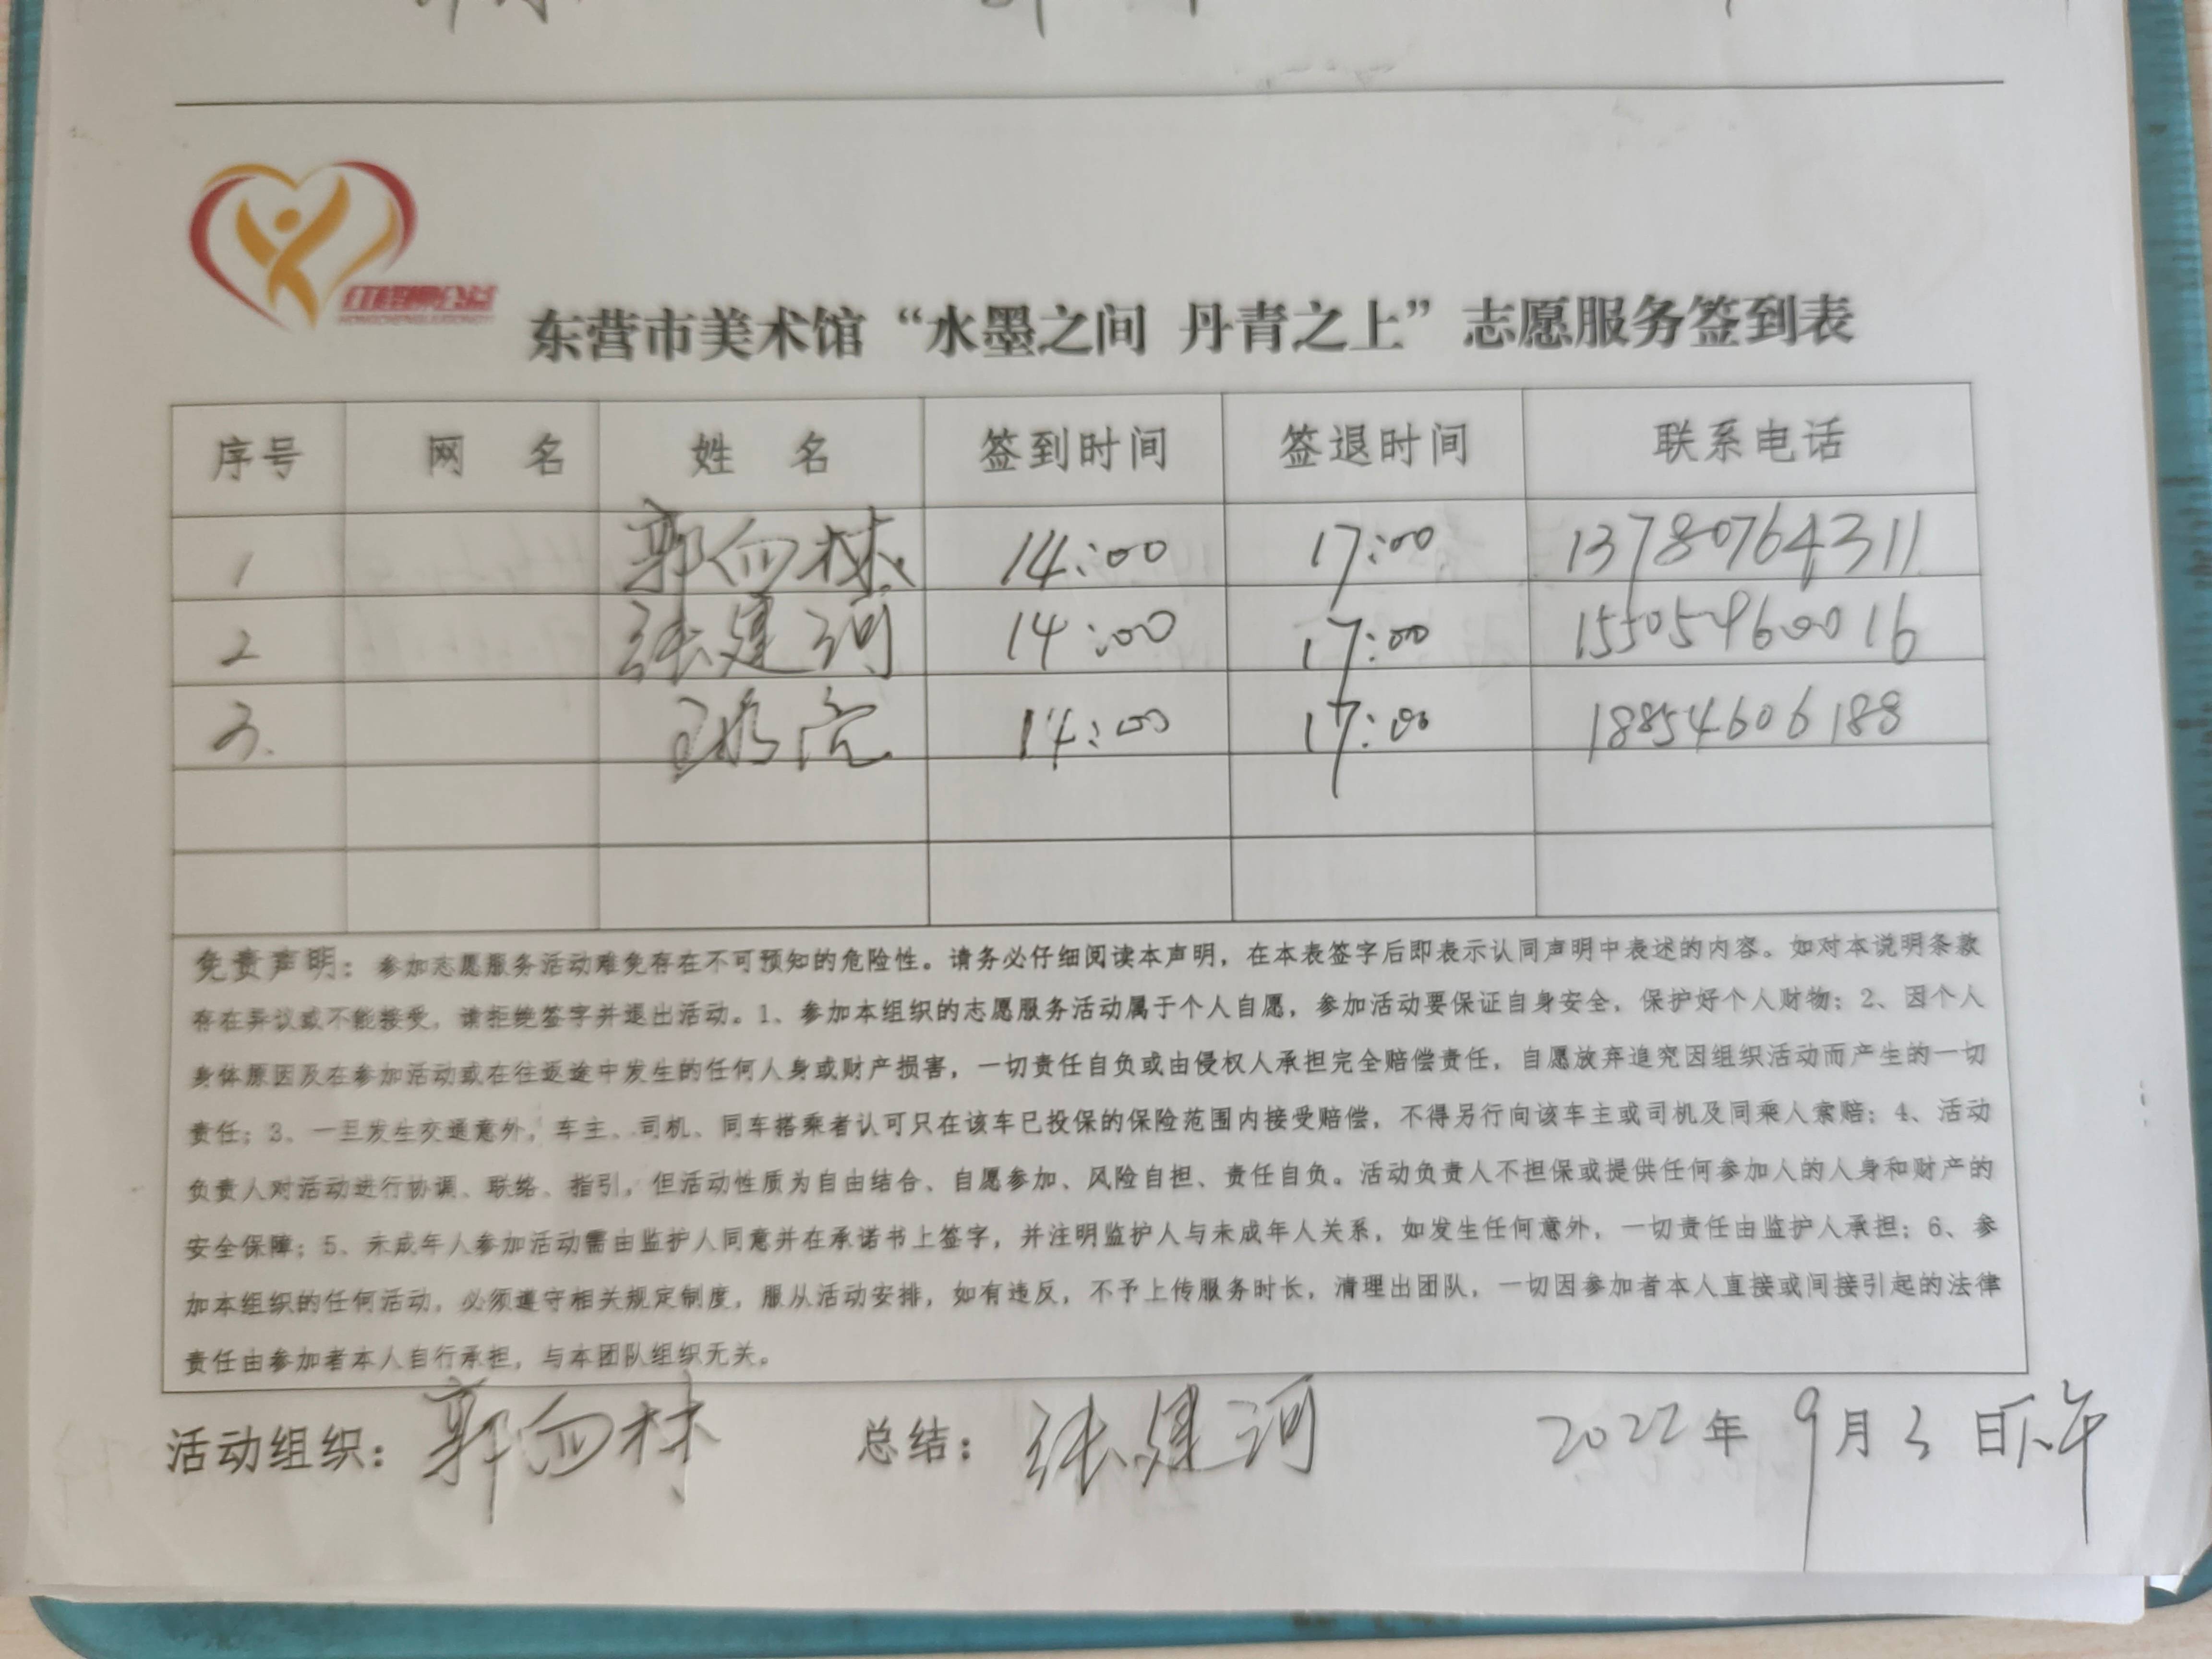 东营市美术馆“水墨之间 丹青之上”志愿服务签到表
序号 网 名 姓 名 签到时间 签退时间 联系电话
1 郭向林 14:00 17:00 13780764311
2 张建河 14:00 17:00 15505460016
3. 14:00 17:00 18854606188
免责声明：参加志愿服务活动难免存在不可预知的危险性。请务必仔细阅读本声明，在本表签字后即表示认同声明中表述的内容。如对本说明条款
存在异议或不能接受，请拒绝签字并退出活动。1、参加本组织的志愿服务活动属于个人自愿，参加活动要保证自身安全，保护好个人财物；2、因个人
身体原因及在参加活动或在往返途中发生的任何人身或财产损害，一切责任自负或由侵权人承担完全赔偿责任，自愿放弃追究因组织活动而产生的一切
责任；3、一旦发生交通意外，车主、司机、同车搭乘者认可只在该车已投保的保险范围内接受赔偿，不得另行向该车主或司机及同乘人索赔；4、活动
负责人对活动进行协调、联络、指引，但活动性质为自由结合、自愿参加、风险自担、责任自负。活动负责人不担保或提供任何参加人的人身和财产的
安全保障；5、未成年人参加活动需由监护人同意并在承诺书上签字，并注明监护人与未成年人关系，如发生任何意外，一切责任由监护人承担；6、参
加本组织的任何活动，必须遵守相关规定制度，服从活动安排，如有违反，不予上传服务时长，清理出团队，一切因参加者本人直接或间接引起的法律
责任由参加者本人自行承担，与本团队组织无关。
活动组织：郭向林 总结：张建河 2022年9月3日下午